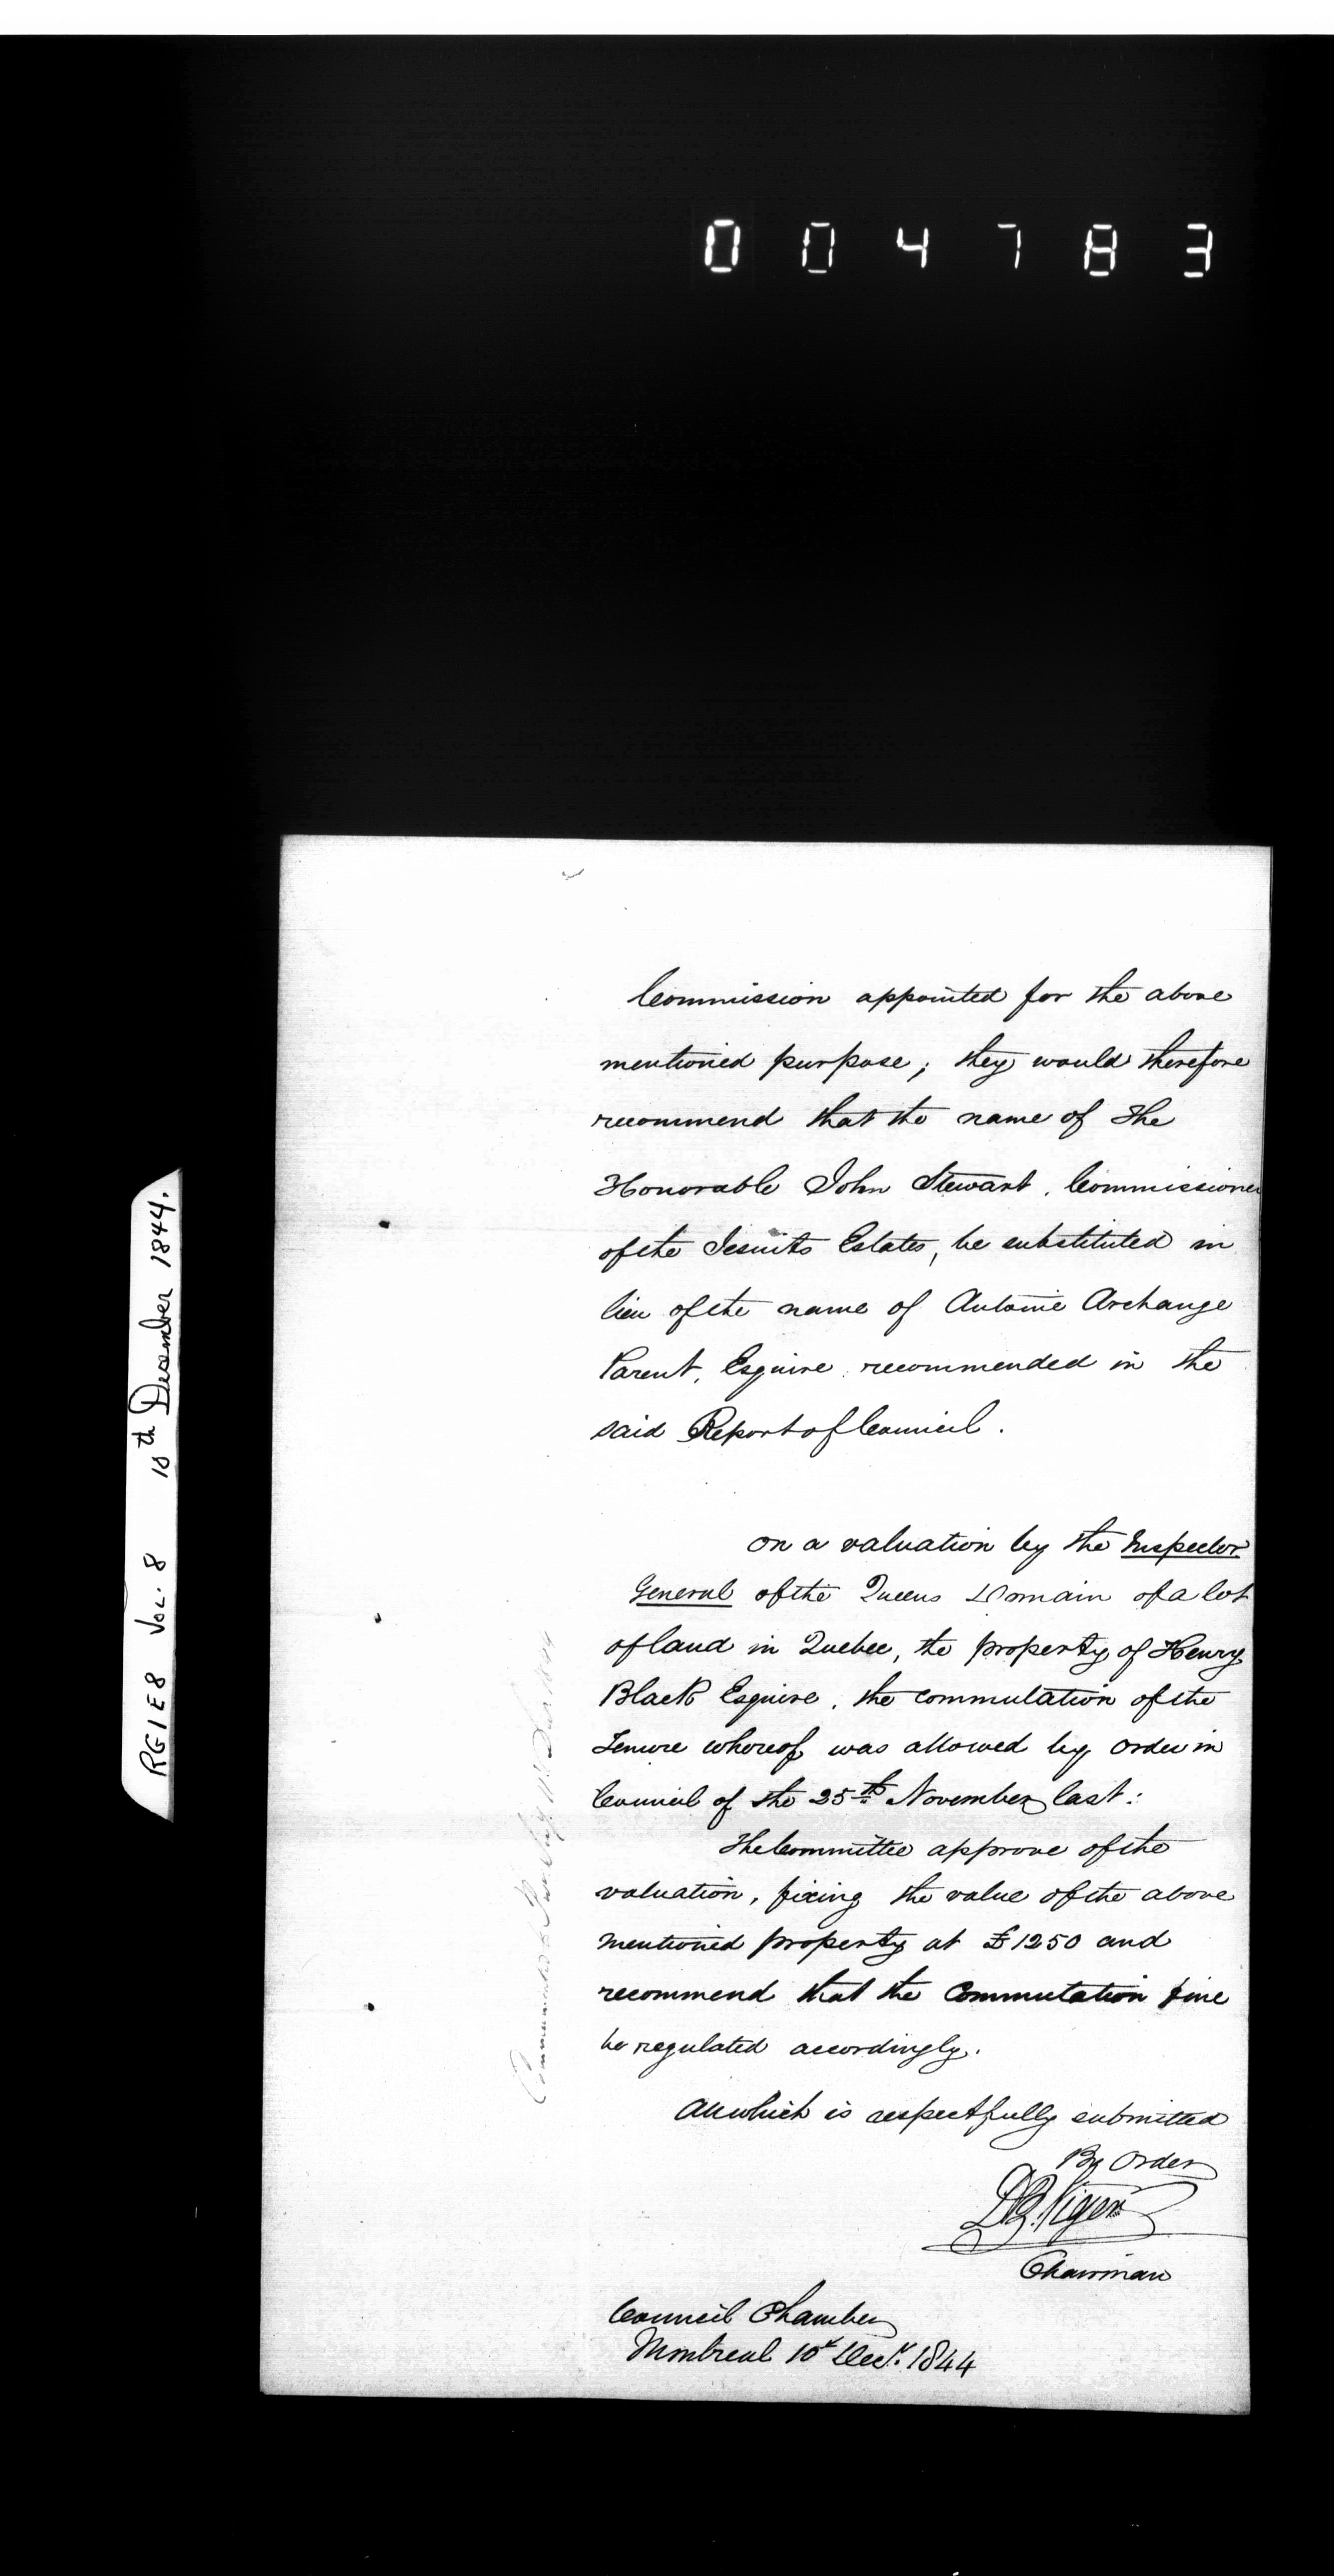 0 0 4 7 8 3
Commission appointed for the above
mentioned purpose; they would therefore
recommend that the name of The
Honorable John Stewart, Commissioner
of the Jesuits Estates, be substituted in
lieu of the name of Antoine Archange
Parent, Esquire recommended in the
said Report of Council.
On a valuation by the Inspector
General of the Queens Domain of a lot
of land in Quebec, the property of Henry
Black Esquire, the commutation of the
Tenure whereof was allowed by order in
Council of the 25th November last:
The Committee approve of the
valuation, fixing the value of the above
mentioned property at £1250 and
recommend that the Commutation fine
be regulated accordingly.
All which is respectfully submitted
By Order
D.B. Viger
Chairman
Council Chamber
Montreal 10th Decr. 1844
RG1E8 VOL. 8 10th December 1844.